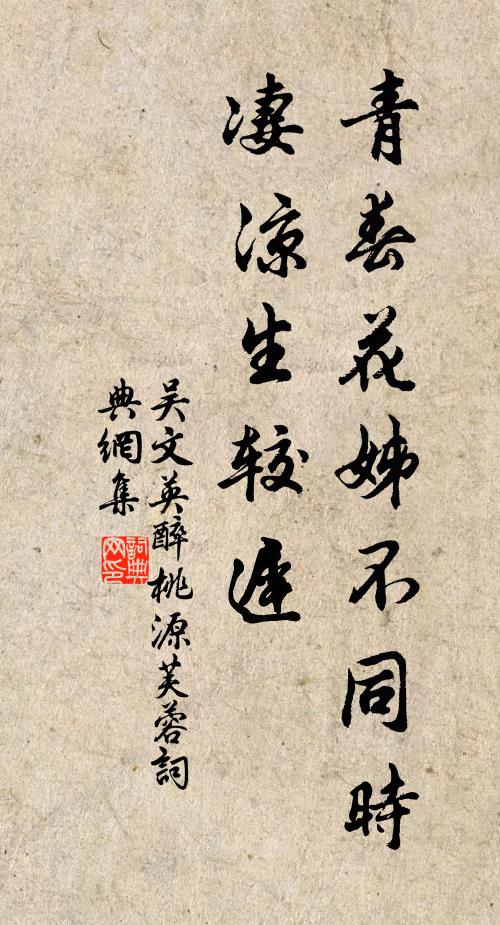 青春花姊不同時
凄涼生較遲
吴文英醉桃源芙蓉詞
典網集
詞典
网印